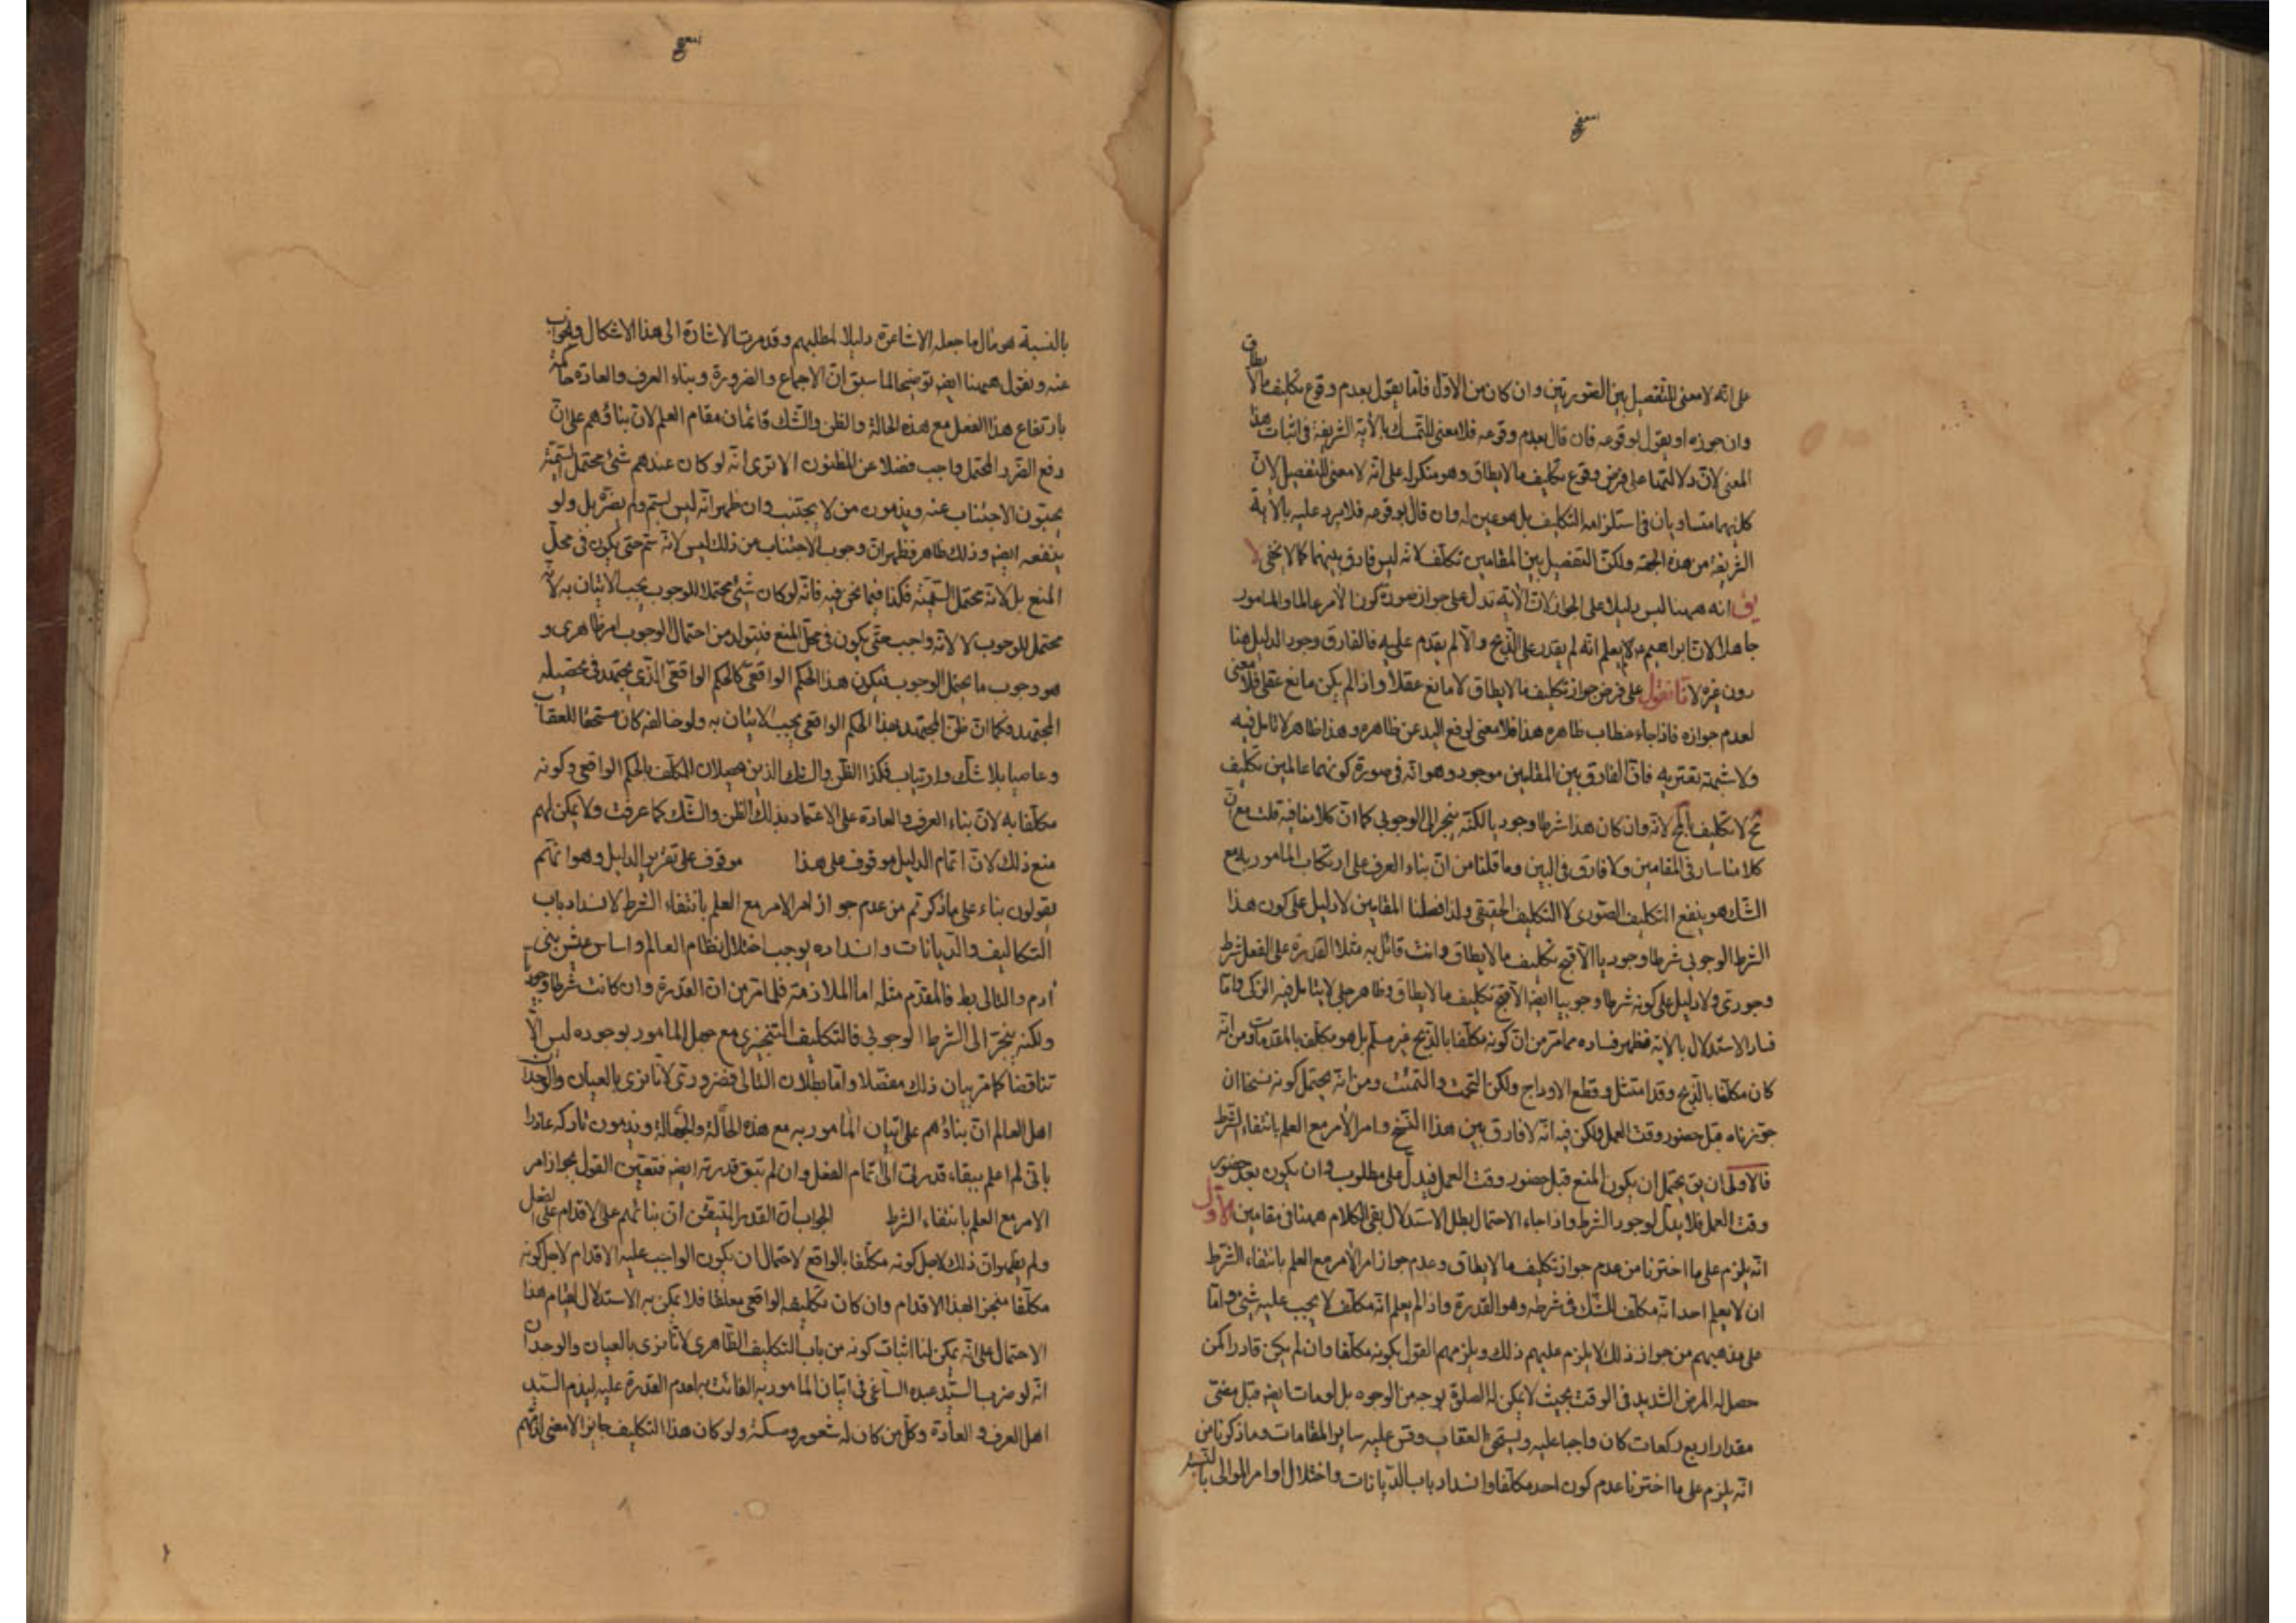 على انه لا معنى للتفصيل بين الصورتين وان كان من الاول فاما يقول بعدم وقوع تكليف ما لا يطاق
وان جوزه او يقول بوقوعه فان قال بعدم وقوعه فلا معنى للتمسك بالآية الشريفة فى اثبات هذا
المعنى لان دلالتها على فرض وقوع تكليف ما لا يطاق وهو منكر له على انه لا معنى للتفصيل لان
كليهما متساويان فى استلزامه التكليف بل هو عين له وان قال بوقوعه فلا يرد عليه بالآية
الشريفة من هذه الجهة ولكن التفصيل بين المقامين تكلف لانه ليس فارق بينهما كما لا يخفى لا
يق انه ههنا ليس دليلا على الجواز لان الآية تدل على جواز صورة كون الآمر عالما والمامور
جاهلا لان ابراهيم لم يعلم انه لم يقدر على الذبح والا لم يقدم عليه فالفارق وجود الدليل هنا
دون غيره لانا نقول على فرض جواز تكليف ما لا يطاق لا مانع عقلا واذا لم يكن مانع عقلى فلا معنى
لعدم جوازه فاذا جاء خطاب ظاهره هذا فلا معنى لرفع اليد عن ظاهره وهذا ظاهر لا تامل فيه
ولا شبهة تعتريه فان الفارق بين المقامين موجود وهو انه فى صورة كونهما عالمين تكليف
مح لا تكليف بالمح لانه وان كان هذا شرطا وجوديا لكنه ينجر الى الوجوبى كما ان كلامنا فيه قلت مع ان
كلامنا سار فى المقامين ولا فارق فى البين وما قلنا من ان بناء العرف على ارتكاب المامور به مع
الشك هو ينفع التكليف الصورى لا التكليف الحقيقى ولذا فصلنا المقامين لا دليل على كون هذا
الشرط الوجوبى شرطا وجوديا الا قبح تكليف ما لا يطاق وانت قائل به مثلا القدرة على الفعل شرط
وجودى ولا دليل على كونه شرطا وجوبيا ايضا الا قبح تكليف ما لا يطاق وظاهر جلى لا يتامل فيه الزكى واما
فساد الاستدلال بالآية فظهر فساده مما مر من ان كونه مكلفا بالذبح غير مسلم بل هو مكلف بالمقدمات ومن انه
كان مكلفا بالذبح وقد امتثل وقطع الاوداج ولكن التحمت والتمئت ومن انه يحتمل كونه نسخا ان
جوزناه قبل حضور وقت العمل ولكن فيه انه لا فارق بين هذا النسخ وامر الآمر مع العلم بانتفاء الشرط
فالاولى ان يق يحتمل ان يكون المنع قبل حضور وقت العمل فيدل على مطلوب وان يكون بعد حضور
وقت العمل فلا يدل لوجود الشرط واذا جاء الاحتمال بطل الاستدلال بقى الكلام ههنا فى مقامين الاول
انه يلزم على ما اخترنا من عدم جواز تكليف ما لا يطاق وعدم جواز امر الآمر مع العلم بانتفاء الشرط
ان لا يعلم احد انه مكلف للشك فى شرطه وهو القدرة واذا لم يعلم انه مكلف لا يجب عليه شئ واما
على مذهبهم من جواز ذلك لا يلزم عليهم ذلك ويلزمهم القول بكونه مكلفا وان لم يكن قادرا كمن
حصل له المرض الشديد فى الوقت بحيث لا يمكن له الصلوة بوجه من الوجوه بل لو مات ايضا قبل مضى
مقدار اربع ركعات كان واجبا عليه ويستحق العقاب وقس عليه ساير المقامات وما ذكرنا من
انه يلزم على ما اخترنا عدم كون احد مكلفا وانسداد باب الديانات واختلال اوامر الموالى
بالنسبة هو مآل ما جعله الاشاعرة دليلا لمطلبهم وقد مرت الاشارة الى هذا الاشكال والجواب
عنه ونقول ههنا ايضا توضيحا لما سبق ان الاجماع والضرورة وبناء العرف والعادة حاكمة
بارتفاع هذا الفعل مع هذه الحالة والظن والشك قائمان مقام العلم لان بناؤهم على ان
دفع الضرر المحتمل واجب فضلا عن المظنون الا ترى انه لو كان عندهم شئ محتمل السمية
يحبون الاجتناب عنه ويذمون من لا يجتنب وان ظهر انه ليس بسم ولم يضره بل ولو
ينفعه ايضا وذلك ظاهر فظهر ان وجوب الاجتناب من ذلك ليس لانه سم حتى يكون فى محل
المنع بل لانه محتمل السمية فكذا فيما نحن فيه فانه لو كان شئ محتملا للوجوب يجب الاتيان به لانه
محتمل للوجوب لا لانه واجب حتى يكون فى محل المنع فيتولد من احتمال الوجوب امر ظاهرى و
هو وجوب ما يحتمل الوجوب فيكون هذا الحكم الواقعى كالحكم الواقعى الذى يجتهد فى تحصيله
المجتهد فكما ان ظن المجتهد بهذا الحكم الواقعى يجب الاتيان به ولو خالفه كان مستحقا للعقاب
وعاصيا بلا شك وارتياب فكذا الظن والشك الذين يحصلان للمكلف بالحكم الواقعى وكونه
مكلفا به لان بناء العرف والعادة على الاعتماد بذلك الظن والشك كما عرفت ولا يمكن لهم
منع ذلك لان اتمام الدليل موقوف على هذا موقوف على تقرير الدليل وهو انهم
يقولون بناء على ما ذكرتم من عدم جواز امر الامر مع العلم بانتفاء الشرط لانسداد باب
التكاليف والديانات وانسداده يوجب اختلال نظام العالم واساس عيش بنى
آدم والتالى بط فالمقدم مثله اما الملازمة فلما مر من ان القدرة وان كانت شرطا وجوديا
ولكنه ينجر الى الشرط الوجوبى فالتكليف التنجيزى مع جهل المامور بوجوده ليس الا
تناقضا كما مر بيان ذلك مفصلا واما بطلان التالى فضرورى لانا نرى بالعيان والوجدان
اهل العالم ان بناؤهم على اتيان المامور به مع هذه الحالة والجهالة ويذمون تاركه عاذرا
بانى لم اعلم ببقاء قدرتى الى تمام الفعل وان لم تبق قدرته ايضا فتعين القول بجواز امر
الامر مع العلم بانتفاء الشرط الجواب ان القدر المتيقن ان بنائهم على الاقدام على الفعل
ولم يظهر ان ذلك لاجل كونه مكلفا بالواقع لاحتمال ان يكون الواجب عليه الاقدام لاجل كونه
مكلفا منجزا بهذا الاقدام وان كان تكليفه الواقعى معلقا فلا يمكن به الاستدلال لقيام هذا
الاحتمال على انه يمكن لنا اثبات كونه من باب التكليف الظاهرى لانا نرى بالعيان والوجدان
انه لو ضرب السيد عبده الساعى فى اتيان المامور به الفائت به لعدم القدرة عليه ليذم السيد
اهل العرف والعادة وكل من كان له شعور ومسكة ولو كان هذا التكليف جايزا لا معنى لذمهم